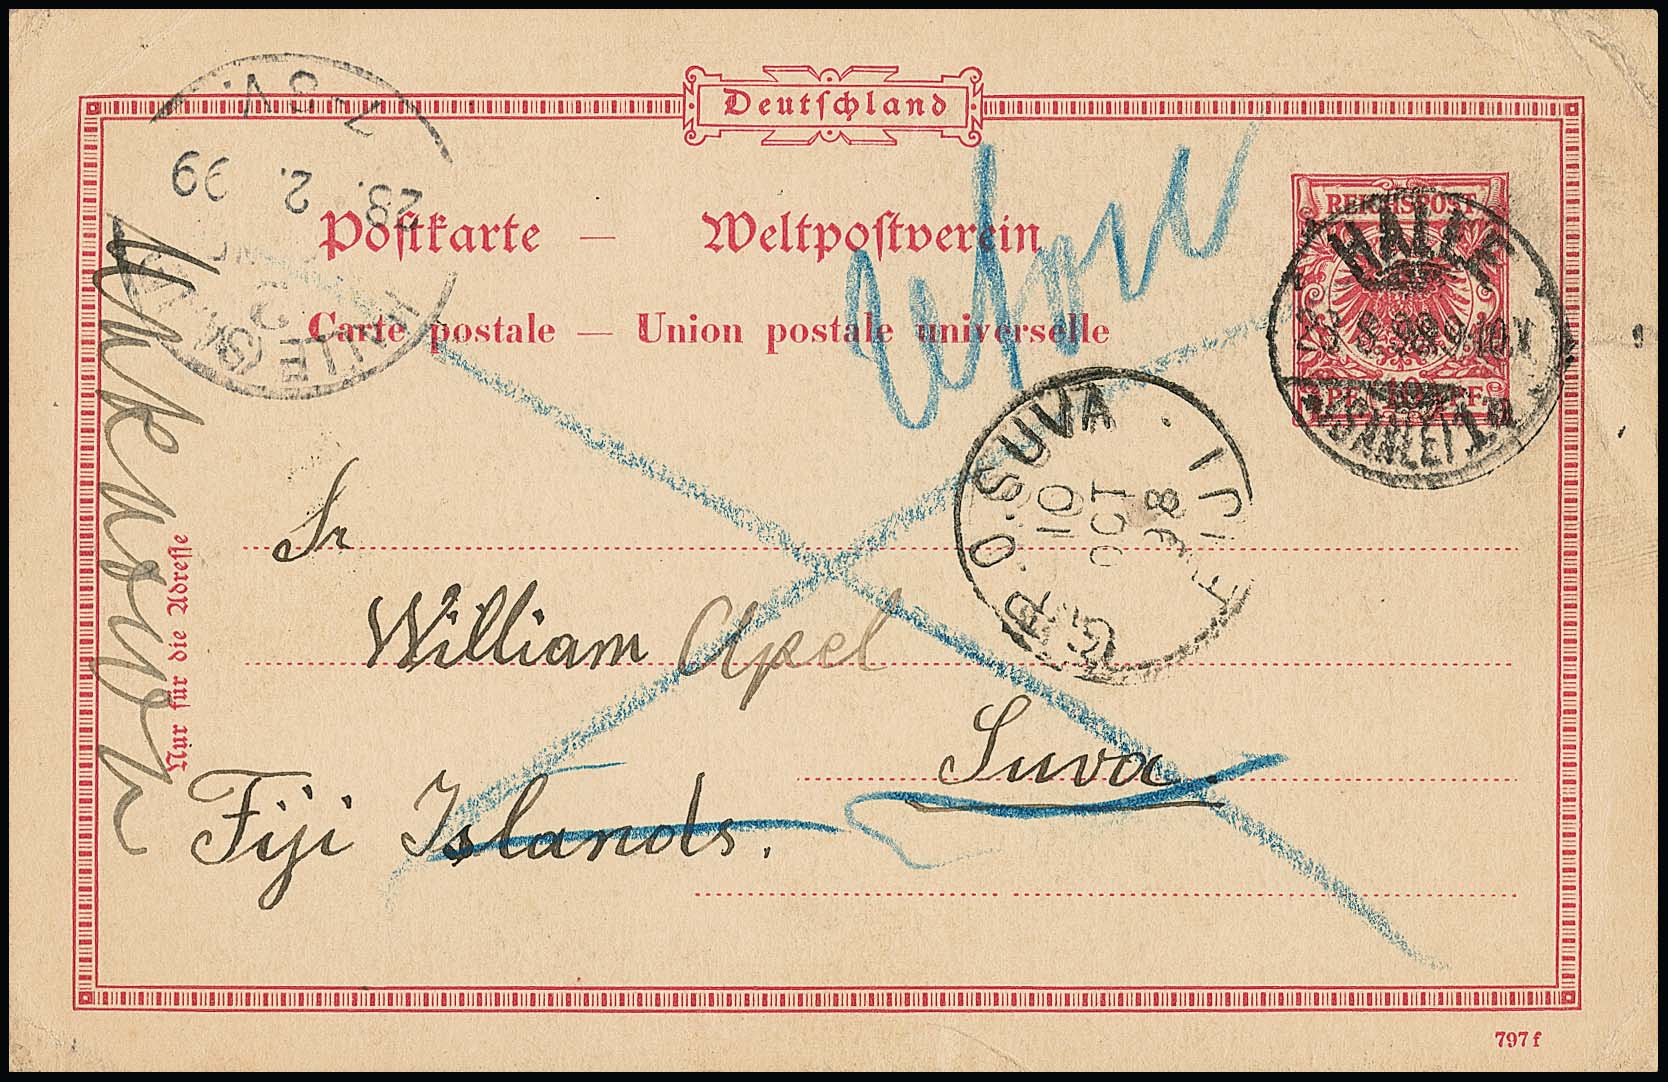 Deutschland
Postkarte — Weltpostverein
Carte postale — Union postale universelle
REICHSPOST
HALLE
(SAALE) 1
7-8 V.
23. 2. 99
HALLE (SAALE)
G.P.O. SUVA
10
OCT
98
FIJI
retour
Unknown
Nur für die Adresse
Sr
William Apel
Suva.
Fiji Islands.
797 f